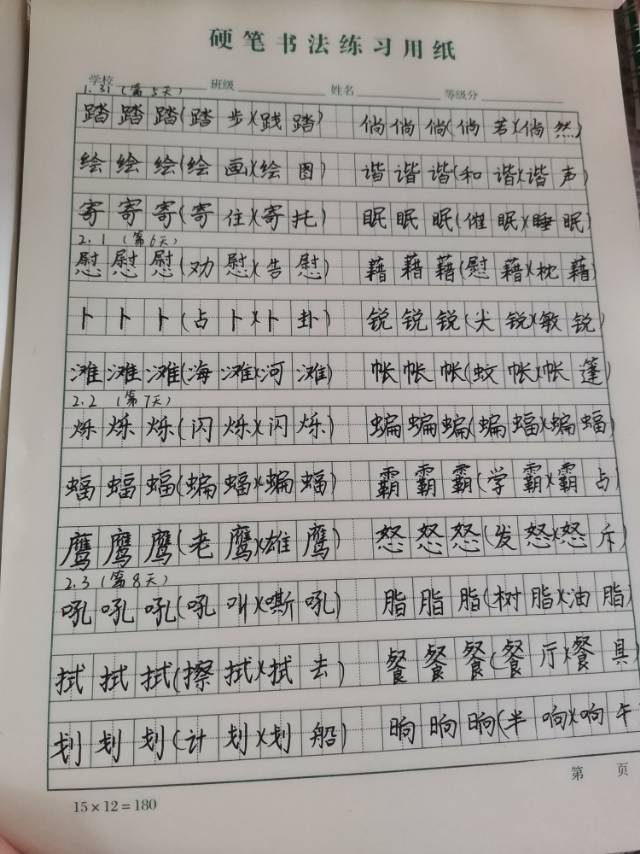 硬笔书法练习用纸
学校 班级 姓名 等级分
1.31 (第5天)
踏踏踏(踏步)(践踏) 倘倘倘(倘若)(倘然)
绘绘绘(绘画)(绘图) 谐谐谐(和谐)(谐声)
寄寄寄(寄住)(寄托) 眠眠眠(催眠)(睡眠)
2.1 (第6天)
慰慰慰(劝慰)(告慰) 藉藉藉(慰藉)(枕藉)
卜卜卜(占卜)(卜卦) 锐锐锐(尖锐)(敏锐)
滩滩滩(海滩)(河滩) 帐帐帐(蚊帐)(帐篷)
2.2 (第7天)
烁烁烁(闪烁)(闪烁) 蝙蝙蝙(蝙蝠)(蝙蝠)
蝠蝠蝠(蝙蝠)(蝙蝠) 霸霸霸(学霸)(霸占)
鹰鹰鹰(老鹰)(雄鹰) 怒怒怒(发怒)(怒斥)
2.3 (第8天)
吼吼吼(吼叫)(嘶吼) 脂脂脂(树脂)(油脂)
拭拭拭(擦拭)(拭去) 餐餐餐(餐厅)(餐具)
划划划(计划)(划船) 晌晌晌(半晌)(晌午
第 页
15×12=180